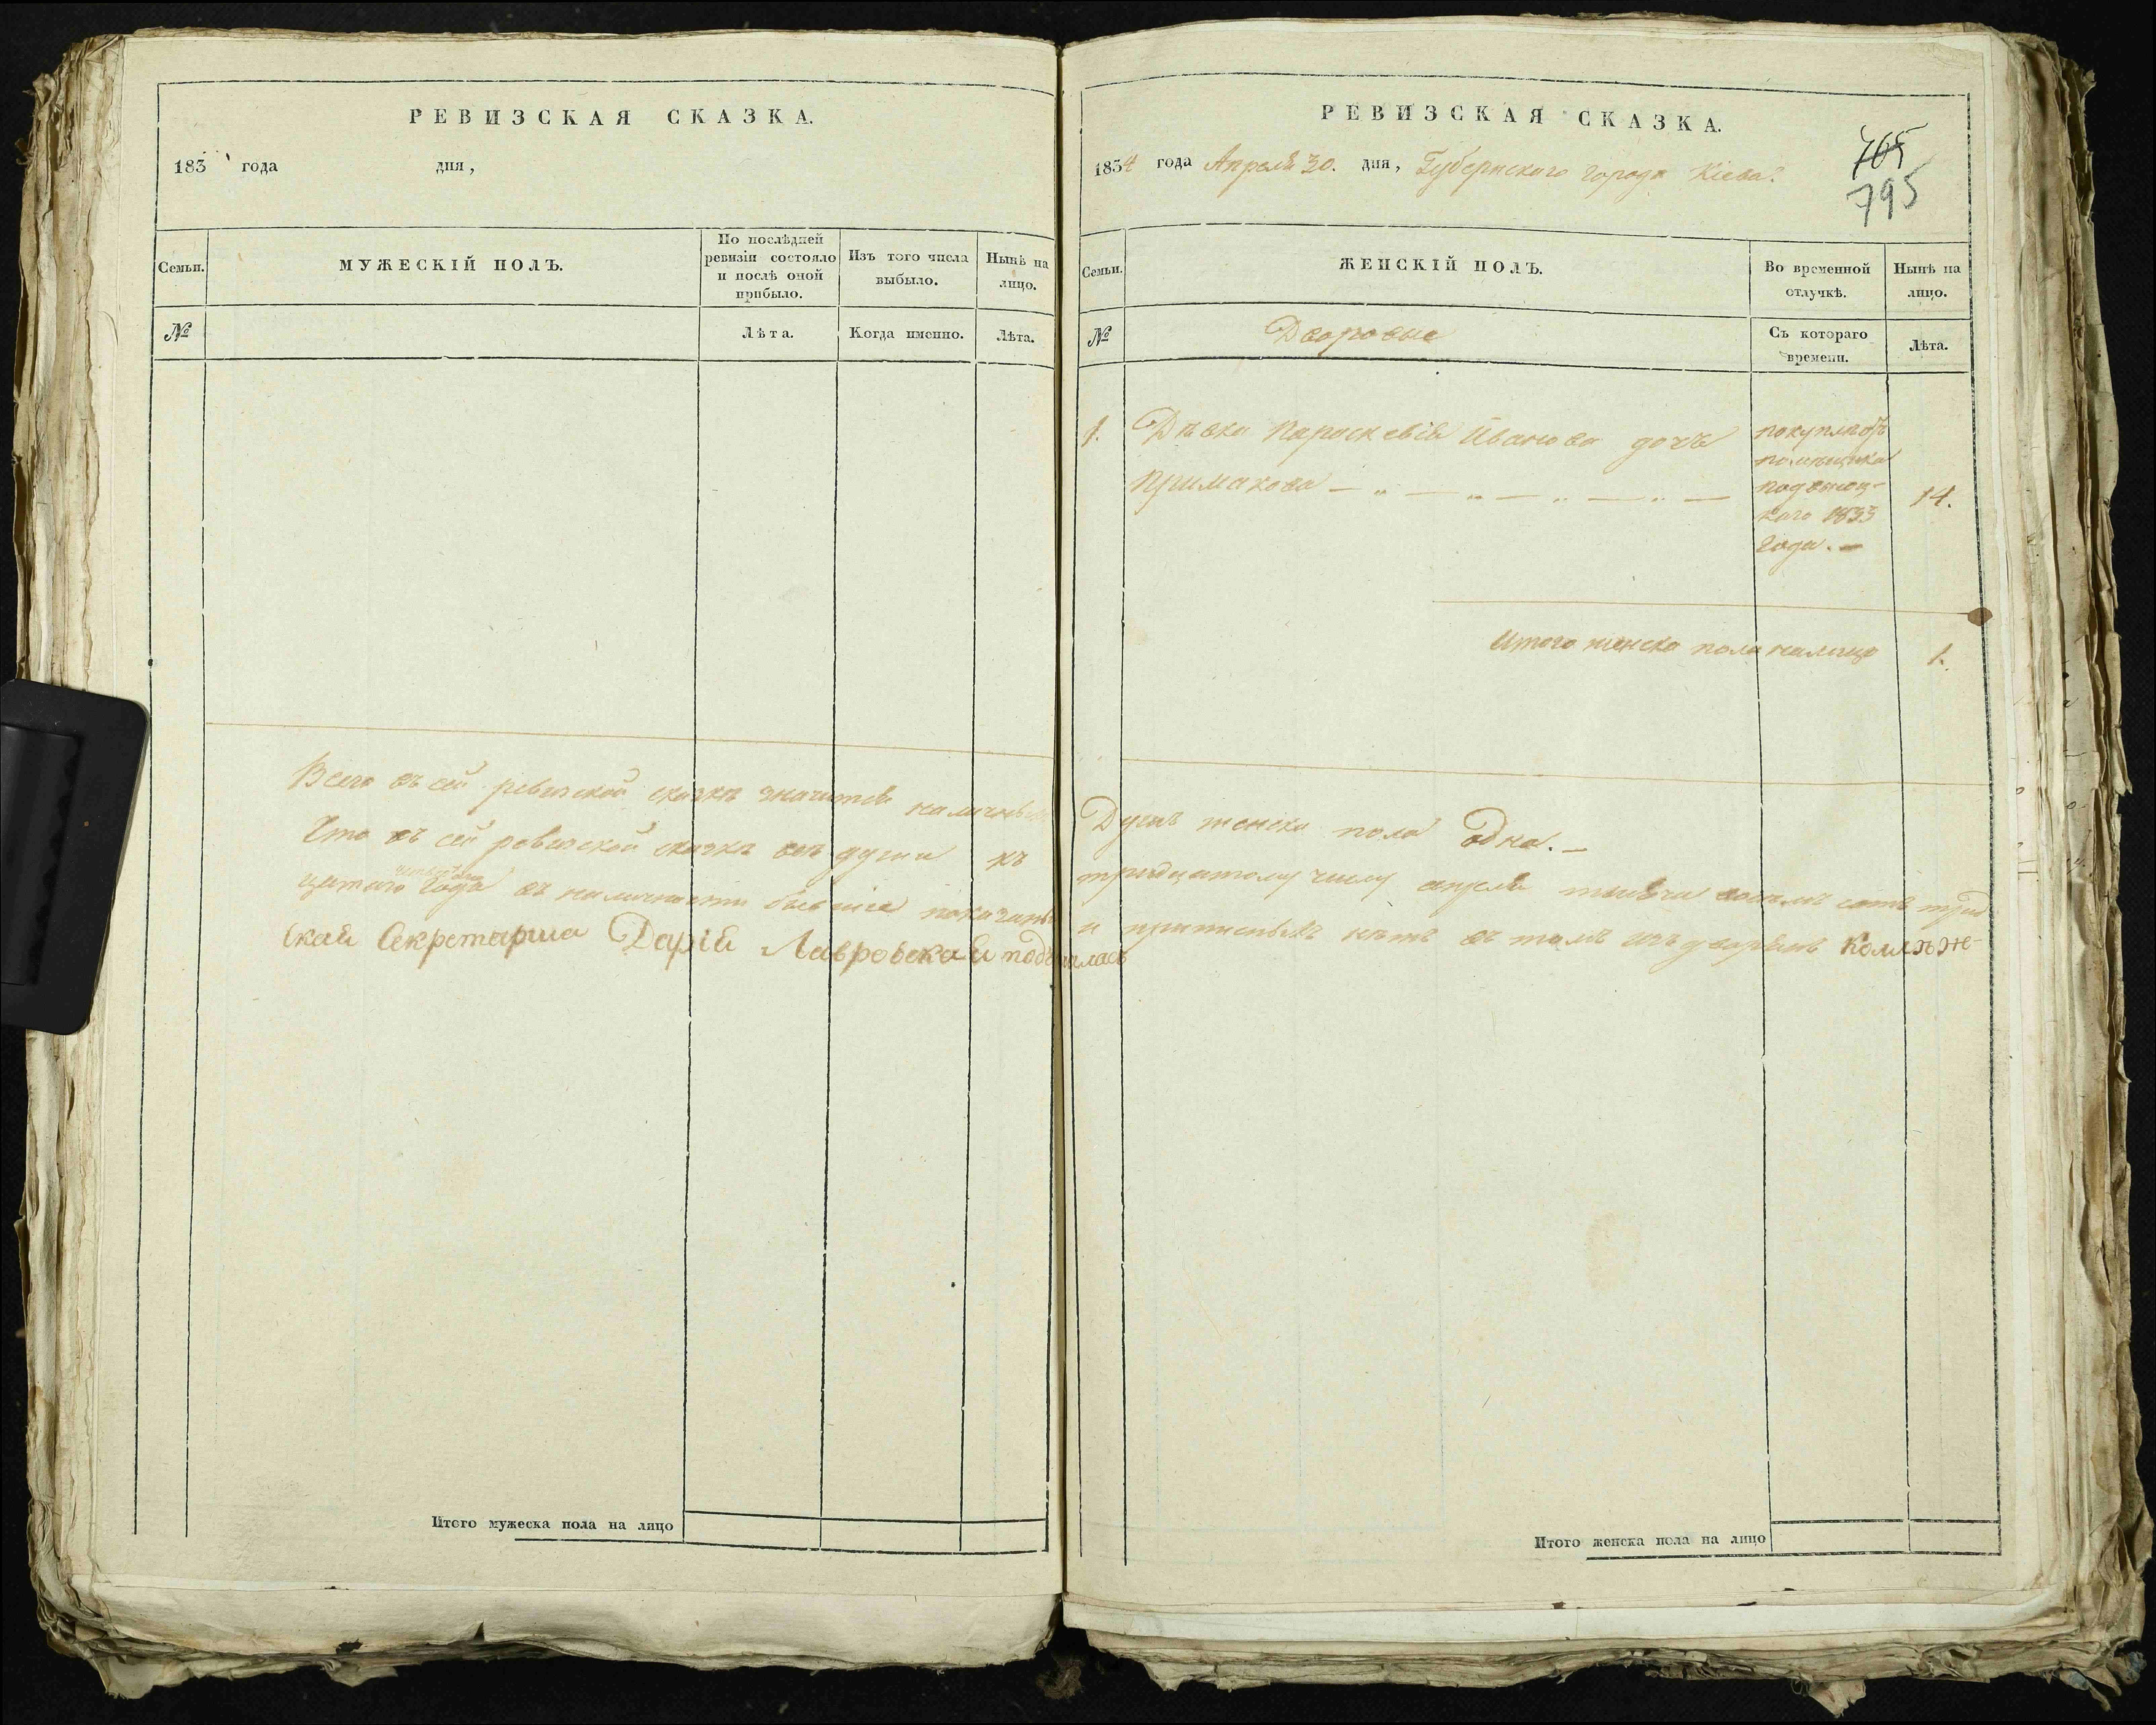 РЕВИЗСКАЯ СКАЗКА.
183 года дня,
Семьи.
МУЖЕСКІЙ ПОЛЪ.
По послѣдней
ревизіи состояло
и послѣ оной
прибыло.
Изъ того числа
выбыло.
Нынѣ на
лицо.
№
Лѣта.
Когда именно.
Лѣта.
Всего въ сей ревизской сказкѣ значится наличныхъ
Что въ сей ревизской сказкѣ всѣ души къ
цатаго четвертаго года въ наличности бывшіе показаны
ской Секретарша Дарія Лавровская подписалась
Итого мужеска пола на лицо
РЕВИЗСКАЯ СКАЗКА.
1834 года Апреля 30. дня, Губернскаго города Кіева.
765
795
Семьи.
ЖЕНСКІЙ ПОЛЪ.
Во временной
отлучкѣ.
Нынѣ на
лицо.
№
Дворовые
Съ котораго
времени.
Лѣта.
1. Дѣвка Параскевія Иванова дочь
Примакова
помѣщика
каго 1833
года.
14.
Итого женска пола налицо 1.
Душъ женска пола одна.
тридцатому числу апреля тысяча восемь сотъ трид
и прописныхъ нѣтъ въ томъ изъ дворянъ Коллѣже-
Итого женска пола на лицо